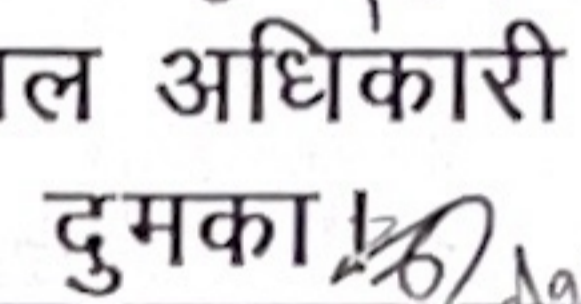 ल अधिकारी
दुमका !